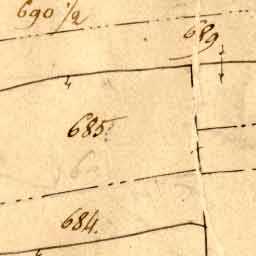 690 1/2
689
685.
684.